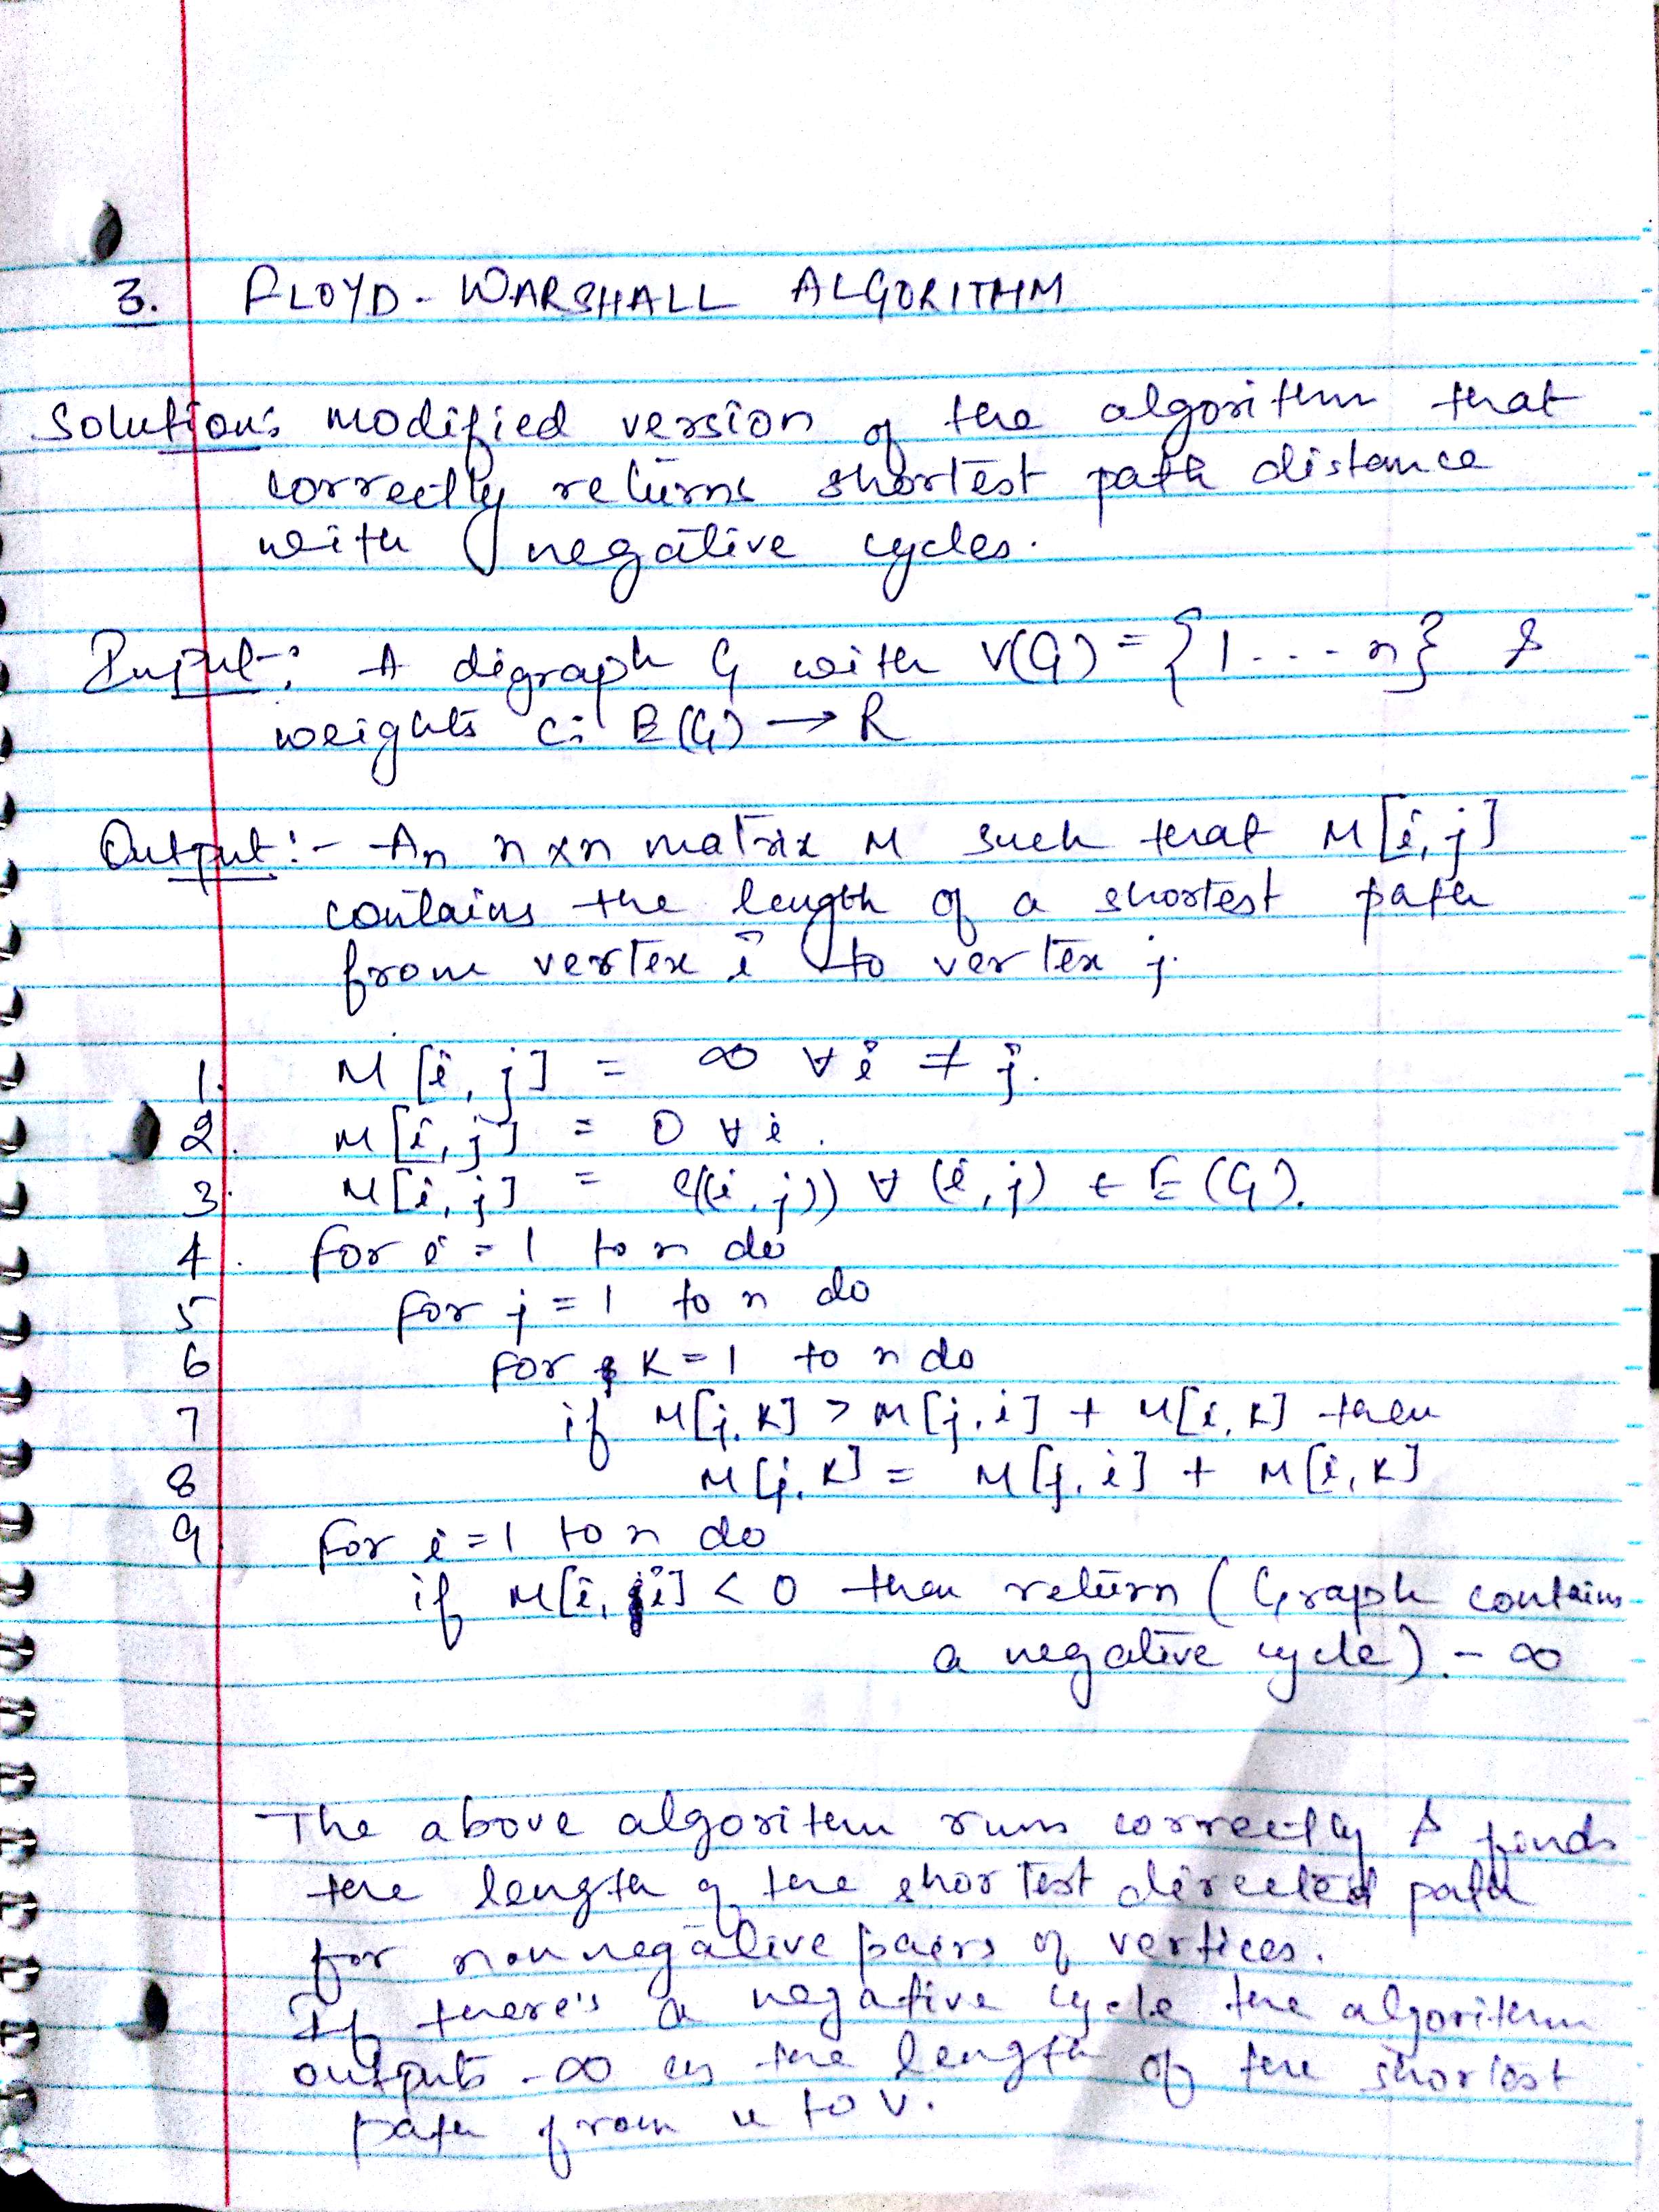 3. FLOYD-WARSHALL ALGORITHM
Solution: modified version of the algorithm that
correctly returns shortest path distance
with negative cycles.
Input:- A digraph G with V(G) = {1....n} &
weights c: E(G) → R
Output:- An n x n matrix M such that M[i,j]
contains the length of a shortest path
from vertex i to vertex j.
1. M[i,j] = ∞ ∀ i ≠ j.
2. M[i,j] = 0 ∀ i.
3. M[i,j] = c((i,j)) ∀ (i,j) ∈ E(G).
4. for i = 1 to n do
5 for j = 1 to n do
6 for k = 1 to n do
7 if M[j,k] > M[j,i] + M[i,k] then
8 M[j,k] = M[j,i] + M[i,k]
9. for i = 1 to n do
if M[i,i] < 0 then return (Graph contains
a negative cycle). - ∞
The above algorithm runs correctly & finds
the length of the shortest directed path
for nonnegative pairs of vertices.
If there's a negative cycle the algorithm
outputs -∞ as the length of the shortest
path from u to v.